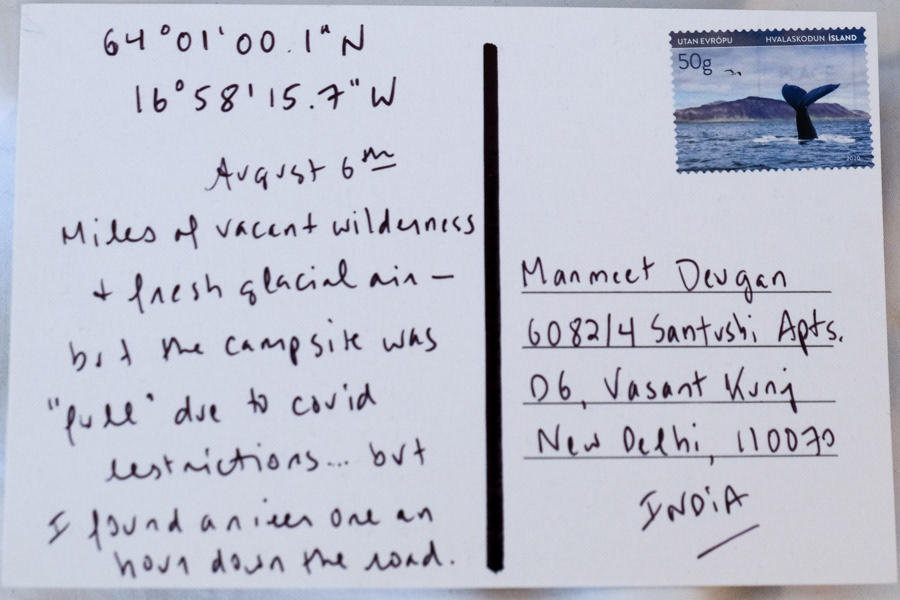 64°01'00.1"N
16°58'15.7"W
August 6th
Miles of vacant wilderness
+ fresh glacial air —
but the campsite was
"full" due to covid
restrictions... but
I found a nicer one an
hour down the road.
UTAN EVRÓPU HVALASKOÐUN ÍSLAND
50g
2020
Manmeet Devgan
6082/4 Santushi Apts.
D6, Vasant Kunj
New Delhi, 110070
INDiA